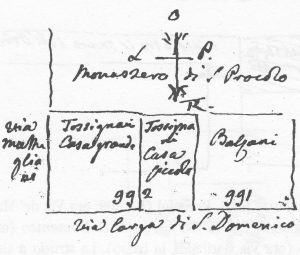 O
L P
Monastero di S. Procolo
R
via
mami
glia
ne
Tossignani
Casagrande
Tossigna
di
Casa
piccola
Balzani
992
991
via larga di S. Domenico